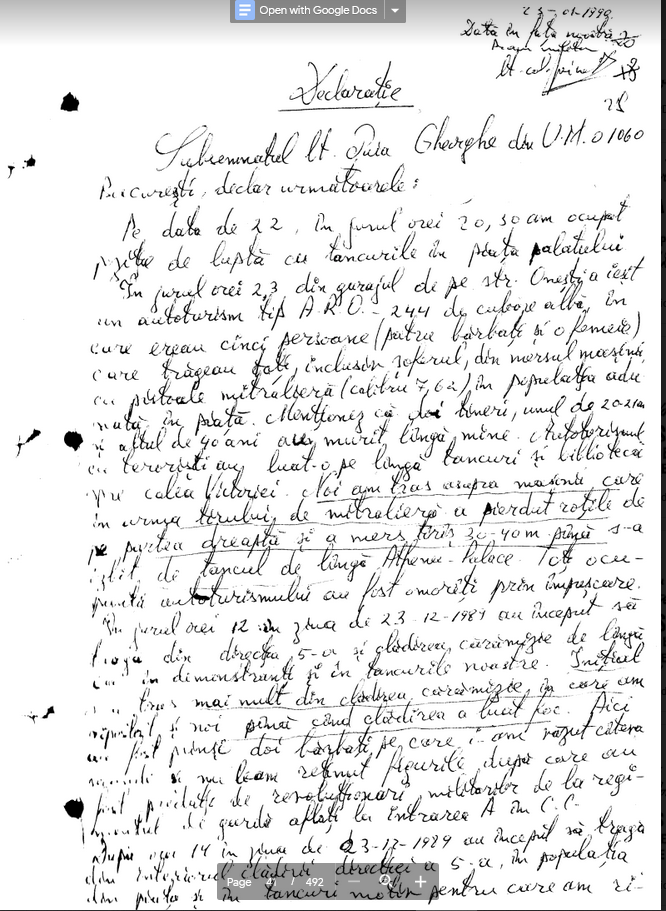 Open with Google Docs
23-01-1990
Data în fața noastră
lt. col.
Declarație
25
Subsemnatul lt. Gheorghe din U.M. 01060
București, declar următoarele:
Pe data de 22, în jurul orei 20,30 am ocupat
poziție de luptă cu tancurile în piața palatului
În jurul orei 23 din garajul de pe str. Onești a ieșit
un autoturism tip A.R.O. - 244 de culoare albă, în
care ereau cinci persoane (patru bărbați și o femeie)
care trăgeau toți, inclusiv șoferul, din mersul mașinii
cu pistoale mitralieră (calibru 7,62) în populația adu
nată în piață. Menționez că doi tineri, unul de 20-21 ani
și altul de 40 ani au murit lîngă mine. Autoturismul
cu teroriști au luat-o pe lîngă tancuri și biblioteca
spre calea Victoriei. Noi am tras asupra mașinii care
în urma tirului de mitralieră a pierdut roțile de
pe partea dreaptă și a mers tîrîș 30-40 m pînă s-a
izbit de tancul de lîngă Athenee-Palace. Toți ocu-
panții autoturismului au fost omorîți prin împușcare.
În jurul orei 12 în ziua de 23-12-1989 au început să
tragă din direcția 5-a și clădirea cărămizie de lîngă
în demonstranți și în tancurile noastre. Inițial
s-a tras mai mult din clădirea cărămizie în care am
ripostat și noi pînă cînd clădirea a luat foc. Aici
au fost prinși doi bărbați pe care i-am văzut cîteva
secunde și nu le-am reținut figurile, după care au
fost predați de revoluționari militarilor de la regi-
mentul de gardă aflați la intrarea A în C.C.
După ora 14 în ziua de 23-12-1989 au început să tragă
din interiorul clădirii direcției a 5-a, în populația
din piață și în tancuri motiv pentru care am ri-
Page 47 / 492